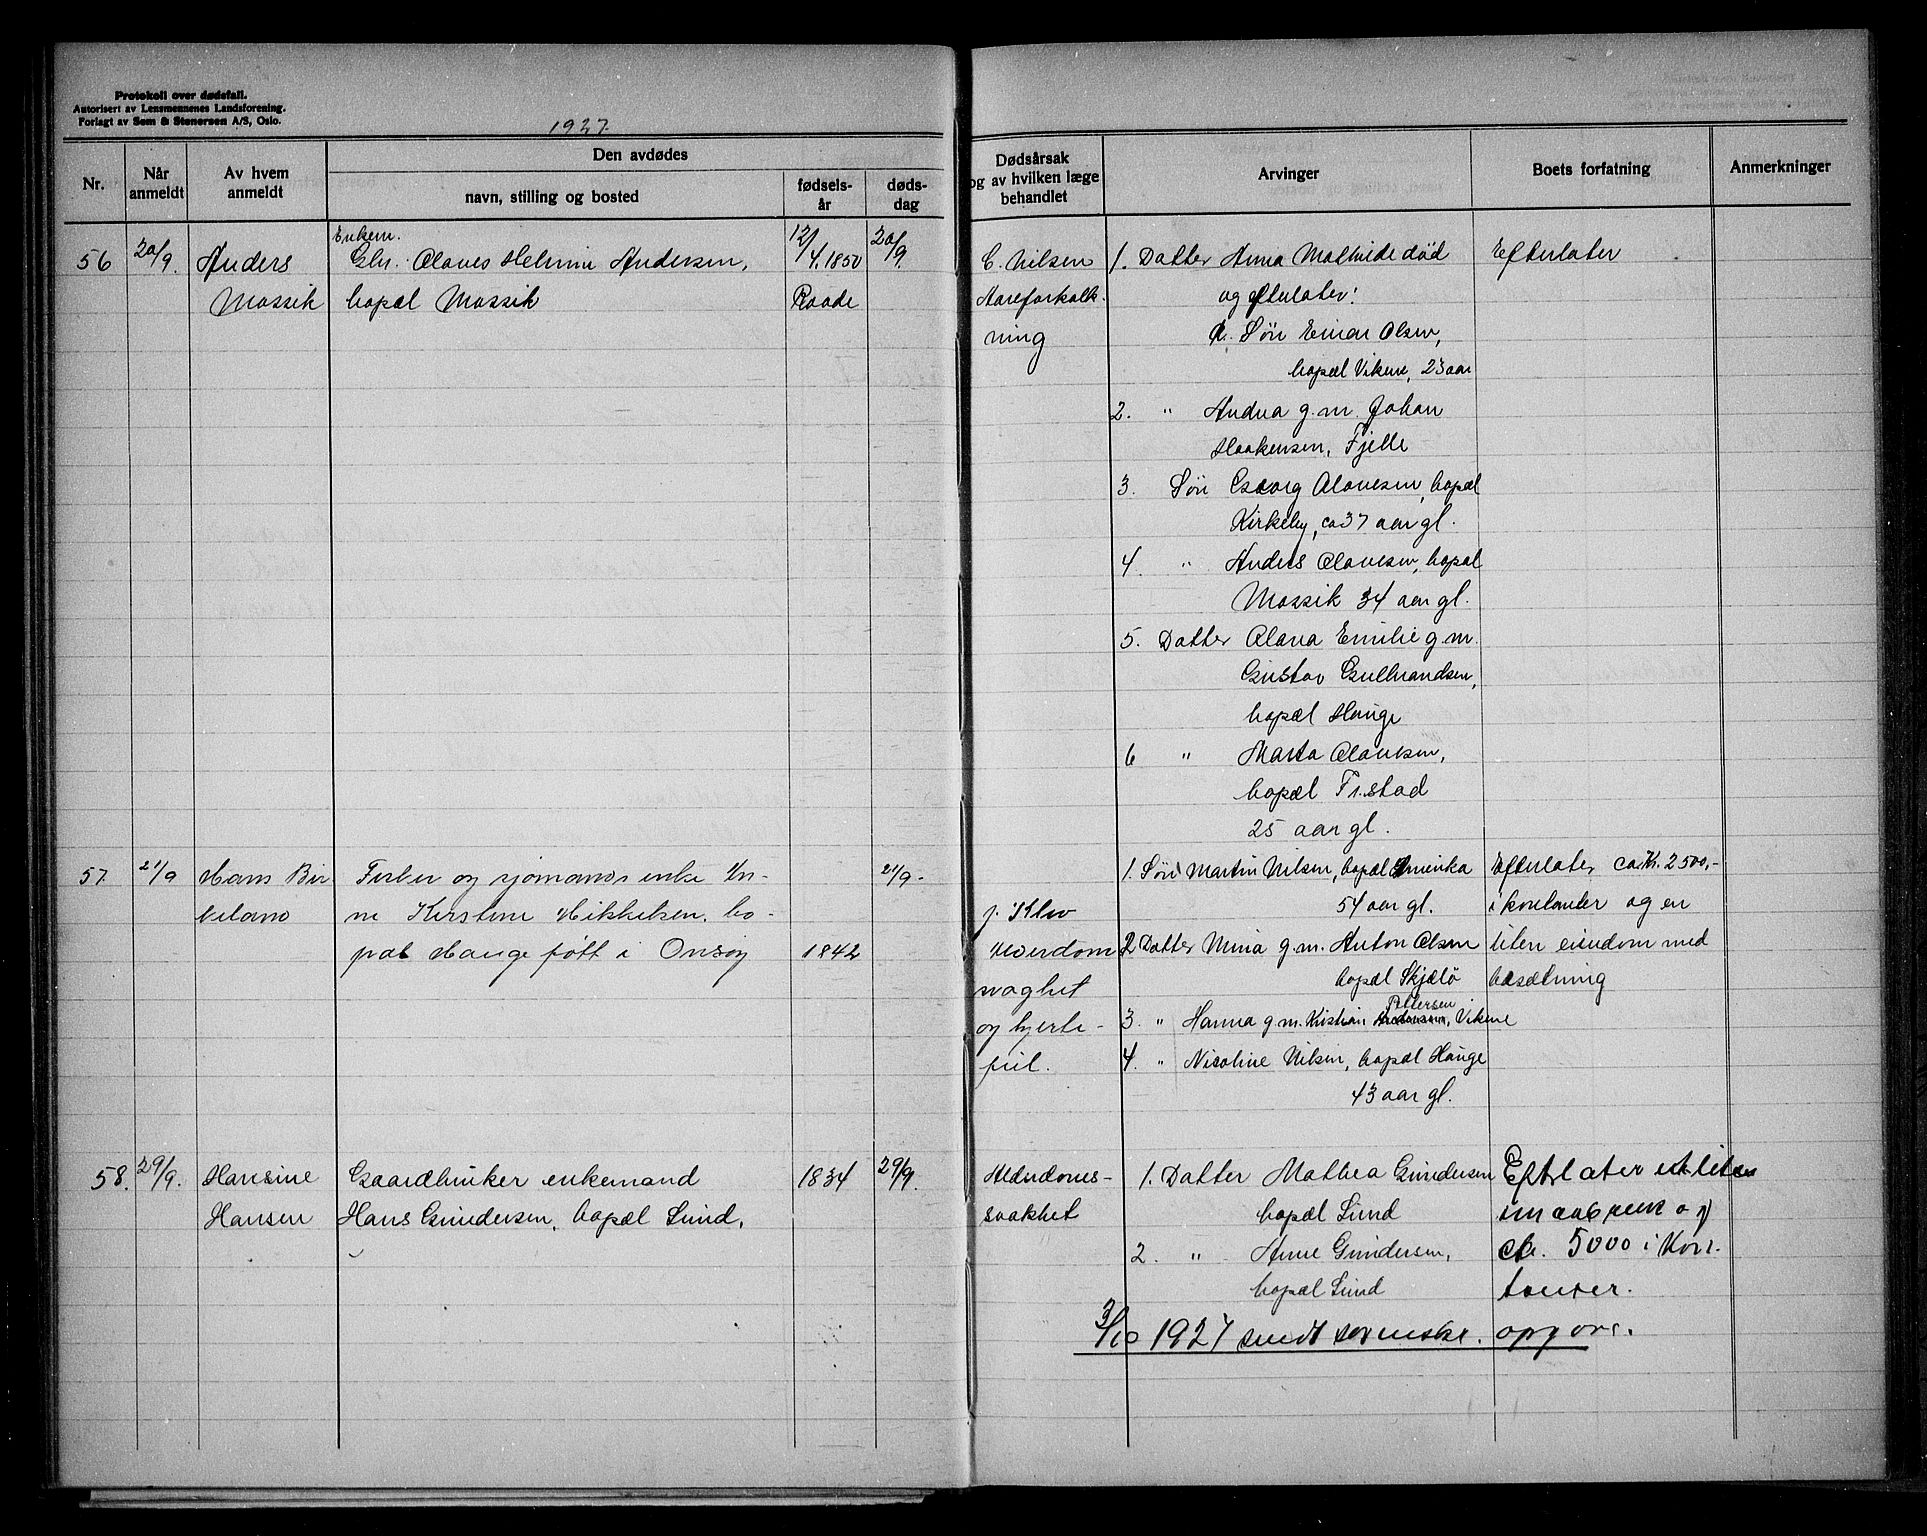 Protokoll over dødsfall.
Autorisert av Lensmennenes Landsforening.
Forlagt av Sem & Stenersen A/S, Oslo.
1927.
Nr.
Når anmeldt
Av hvem anmeldt
Den avdødes
navn, stilling og bosted
fødsels-år
døds-dag
Dødsårsak og av hvilken læge behandlet
Arvinger
Boets forfatning
Anmerkninger
56 20/9. Anders Enkem. Gbr. Olaves Helmin Andersen, 12/4.1850 20/9.
Mossik bopæl Mossik Raade
C. Nilsen
Aareforkalk-
ning
1. Datter Anna Mathilde død
og efterlater:
Søn Einar Olsen,
bopæl Vikene, 23 aar
2. " Andrea g.m. Johan
Haakensen, Fjelle
3. Søn Georg Olavesen, bopæl
Kirkeby, ca 37 aar gl.
4. " Anders Olavesen, bopæl
Mossik 34 aar gl.
5. Datter Olava Emilie g.m.
Gustav Gulbrandsen,
bopæl Hauge
6 " Marta Olavesen,
bopæl Fr.stad
25 aar gl.
Efterlater
57. 21/9 Hans Bir
Fisker og sjømands enke An-
ne Kirstine Mikkelsen, bo-
pæl Hauge født i Onsøy 1842 21/9.
J. Klov
Alderdom
svaghet
og hjerte-
feil.
1. Søn Martin Nilsen, bopæl Amerika
54 aar gl.
2 Datter Mina g.m. Anton Olsen
bopæl Skjælø
3. " Hanna g.m. Kristian Pettersen, Vikene
4. " Nicoline Nilsen, bopæl Hauge
43 aar gl.
Efterlater ca Kr. 2500,-
i kontanter og en
liten eiendom med
besætning
58. 29/9. Hansine Gaardbruker enkemand 1834 29/9.
Hansen Hans Gundersen, bopæl Lund,
Alderdoms-
svakhet
1. Datter Mathea Gundersen
bopæl Lund
2. " Anne Gundersen,
bopæl Lund
Efterlater et litet
smaabruk og
Kr. 5000 i Kon-
tanter.
3/10 1927 sendt sorenskr. opgave.